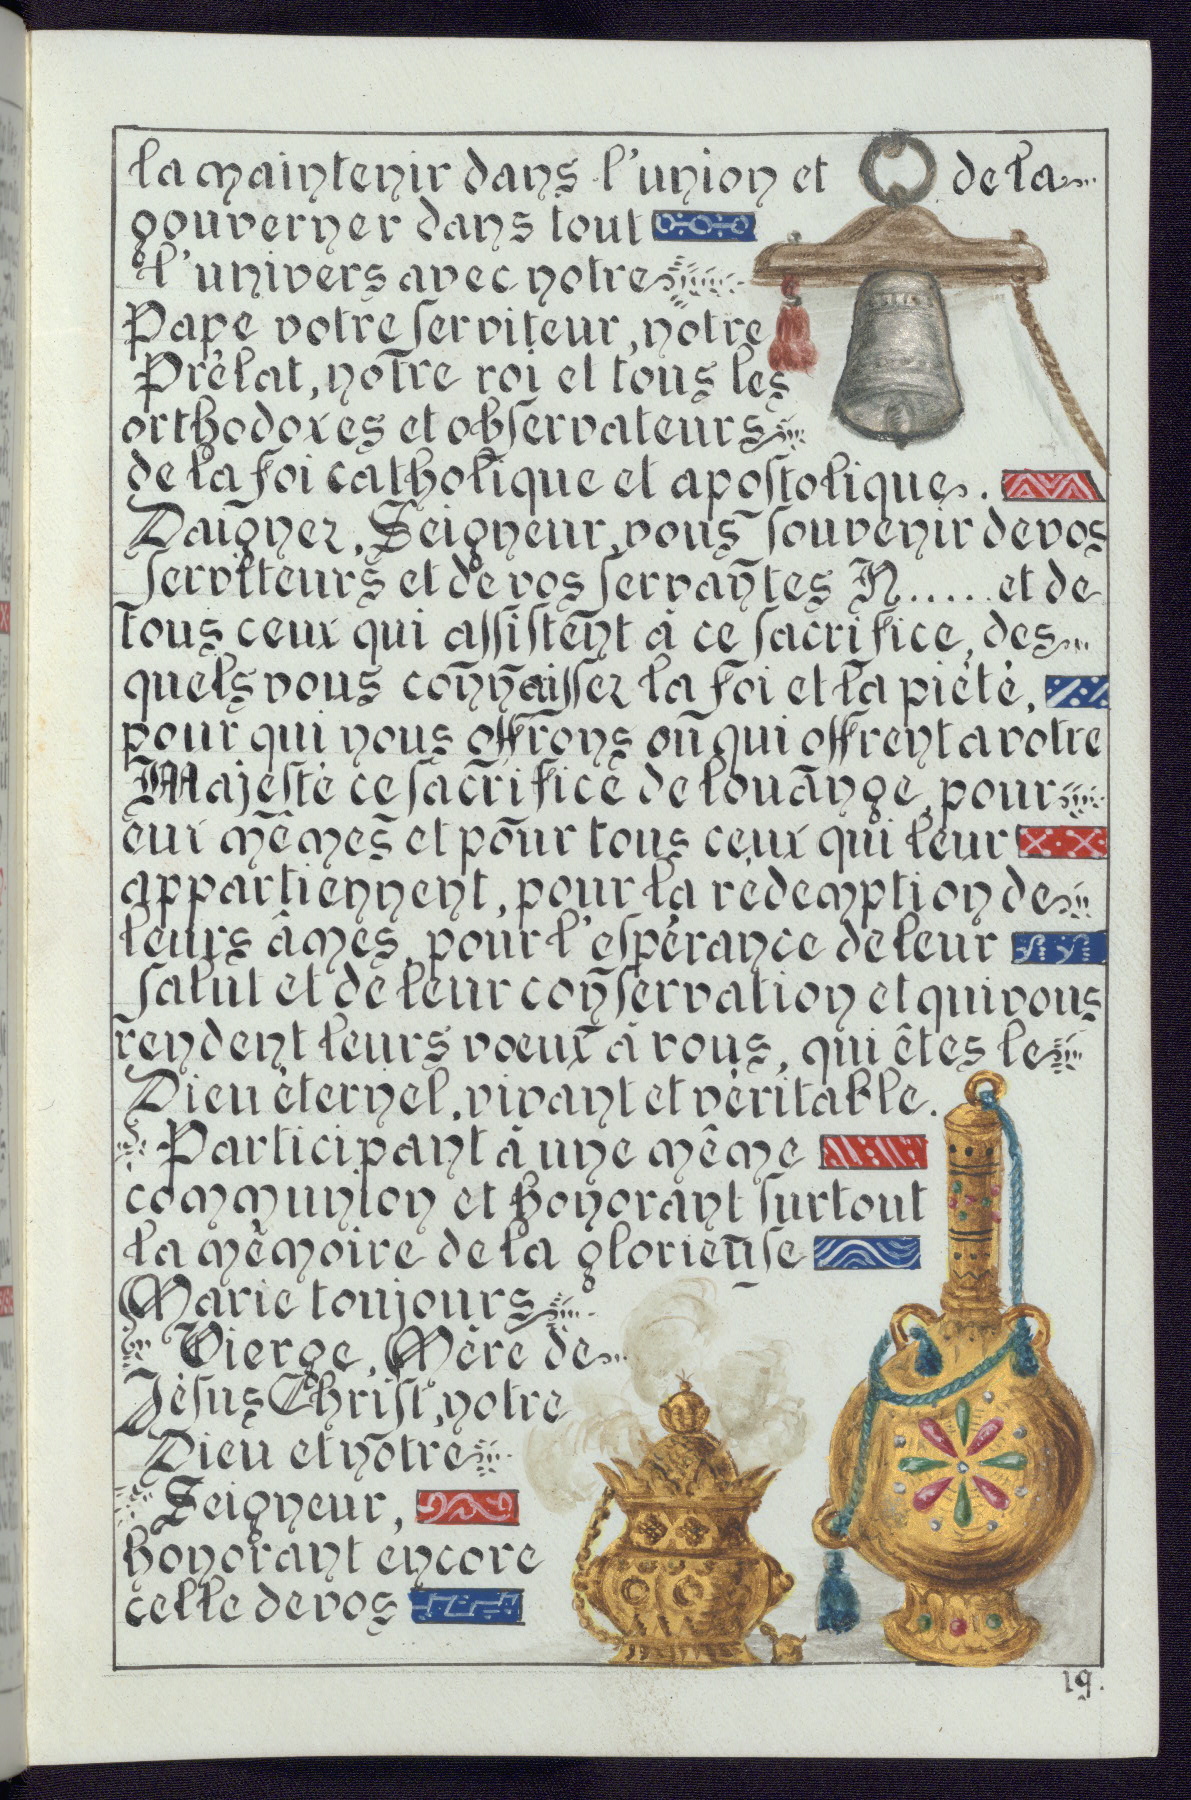 la maintenir dans l'union et de la
gouverner dans tout
l'univers avec notre
Pape votre serviteur, notre
Prélat, notre roi et tous les
orthodoxes et observateurs
de la foi catholique et apostolique.
Daignez, Seigneur, vous souvenir de vos
serviteurs et de vos servantes N..... et de
tous ceux qui assistent à ce sacrifice, des
quels vous connaissez la foi et la piété,
pour qui nous offrons ou qui offrent a votre
Majesté ce sacrifice de louange, pour
eux mêmes et pour tous ceux qui leur
appartiennent, pour la rédemption de
leurs âmes, pour l'espérance de leur
salut et de leur conservation et qui vous
rendent leurs vœux à vous, qui êtes le
Dieu éternel, vivant et véritable.
Participant à une même
communion et honorant surtout
la mémoire de la glorieuse
Marie toujours
Vierge, Mère de
Jésus Christ, notre
Dieu et notre
Seigneur,
honorant encore
celle de vos
19.